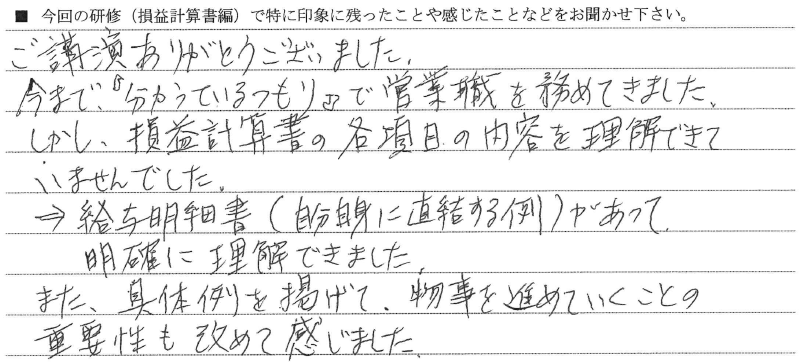 ■ 今回の研修（損益計算書編）で特に印象に残ったことや感じたことなどをお聞かせ下さい。
ご講演ありがとうございました。
今まで、『分かっているつもり』で営業職を務めてきました。
しかし、損益計算書の各項目の内容を理解できて
いませんでした。
⇒ 給与明細書（自分自身に直結する例）があって、
明確に理解できました。
また、具体例を揚げて、物事を進めていくことの
重要性も改めて感じました。